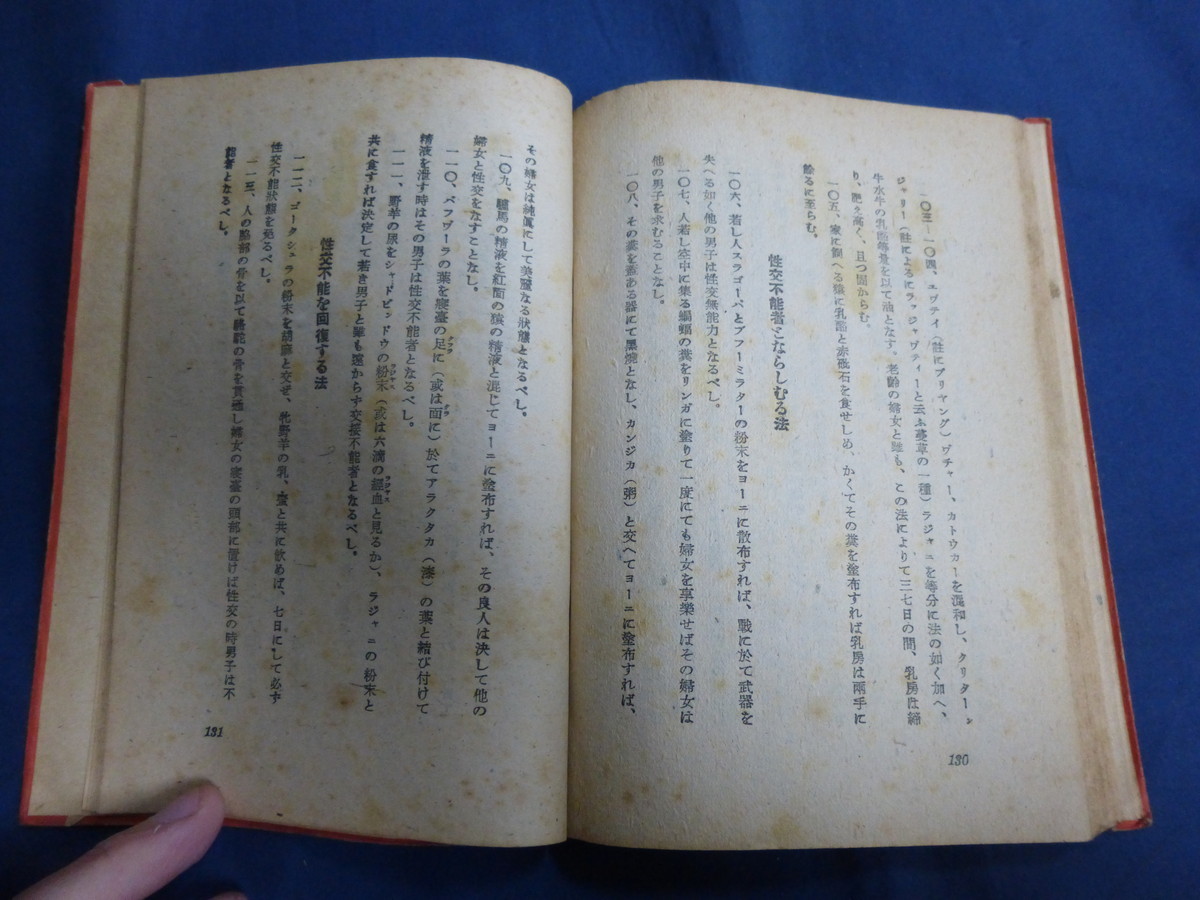 一〇三―一〇四、ユヴティ（註にプリヤング）ヴチャー、カトウカーを混和し、クリターン
ジャリー（註によるにラッジャヴティーと云ふ蔓草の一種）ラジャニを等分に法の如く加へ、
牛水牛の乳酪等量を以て油となす。老齢の婦女と雖も、この法によりて三七日の間、乳房は締
り、肥え高く、且つ固からむ。
一〇五、家に飼へる猿に乳酪と赤砒石を食せしめ、かくてその糞を塗布すれば乳房は両手に
餘るに至らむ。
性交不能者とならしむる法
一〇六、若し人スラゴーパとブフーミラターの粉末をヨーニに散布すれば、戰に於て武器を
失へる如く他の男子は性交無能力となるべし。
一〇七、人若し空中に集る蝙蝠の糞をリンガに塗りて一度にても婦女を享樂せばその婦女は
他の男子を求むることなし。
一〇八、その糞を蓋ある器にて黒燒となし、カンジカ（粥）と交へてヨーニに塗布すれば、
130
その婦女は純眞にして美麗なる狀態となるべし。
一〇九、驢馬の精液を紅面の猿の精液と混じてヨーニに塗布すれば、その良人は決して他の
婦女と性交をなすことなし。
一一〇、バフヴーラの葉を寢臺の足に（或は面に）於てアラクタカ（漆）の葉と結び付けて
精液を泄す時はその男子は性交不能者となるべし。
一一一、野羊の尿をシャドビンドウの粉末（或は六滴の經血と見るか）、ラジャニの粉末と
共に食すれば決定して若き男子と雖も遠からず交接不能者となるべし。
性交不能を回復する法
一一二、ゴークシュラの粉末を胡麻と交ぜ、牝野羊の乳、蜜と共に飲めば、七日にして必ず
性交不能狀態を免るべし。
一一三、人の腕部の骨を以て駱駝の骨を貫通し婦女の寢臺の頭部に置けば性交の時男子は不
能者となるべし。
131